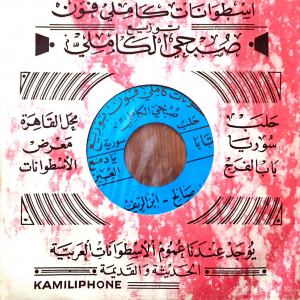 اسطوانات كاملي فون
توزيع
صبحي الكاملي
حلب
سوريا
باب الفرج
محل القاهرة
معرض
الأسطوانات
اسطوانات كاملي فون
صبحي الكاملي
حلب
سورية
يا دمع
العين
صالح
يوجد عندنا عموم الأسطوانات العربية
الحديثة والقديمة
KAMILIPHONE